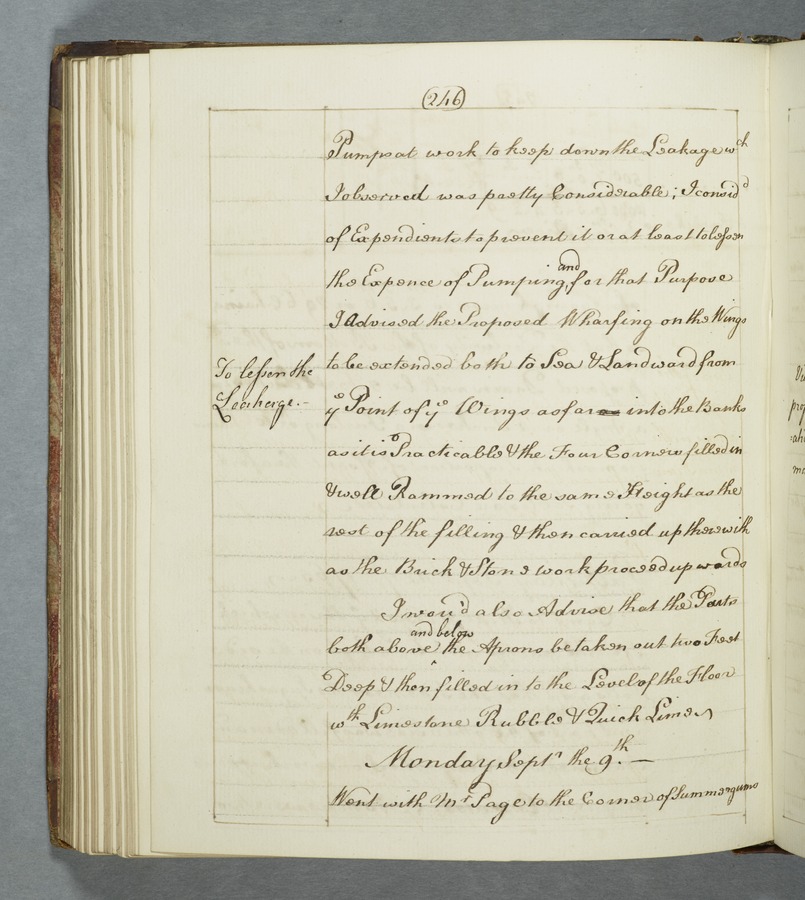 246
Pumps at work to keep down the Leakage wch
I observed was pretty Considerable; I considd
of Expendients to prevent it or at least to lessen
the Expence of Pumping and for that Purpose
I Advised the Proposed Wharfing on the Wings
To lessen the
Leakage.-
to be extended both to Sea & Landward from
ye Point of ye Wings as far into the Banks
as it is Practicable & the Four Corners filled in
& well Rammed to the same Height as the
rest of the filling & then carried up therewith
as the Brick & Stone work proceed upwards
I wou'd also Advise that the Parts
both above and below the Aprons be taken out two Feet
Deep & then filled in to the Level of the Floor
wth Limestone Rubble & Quick Lime
Monday Septr the 9th.—
Went with Mr Page to the Corner of